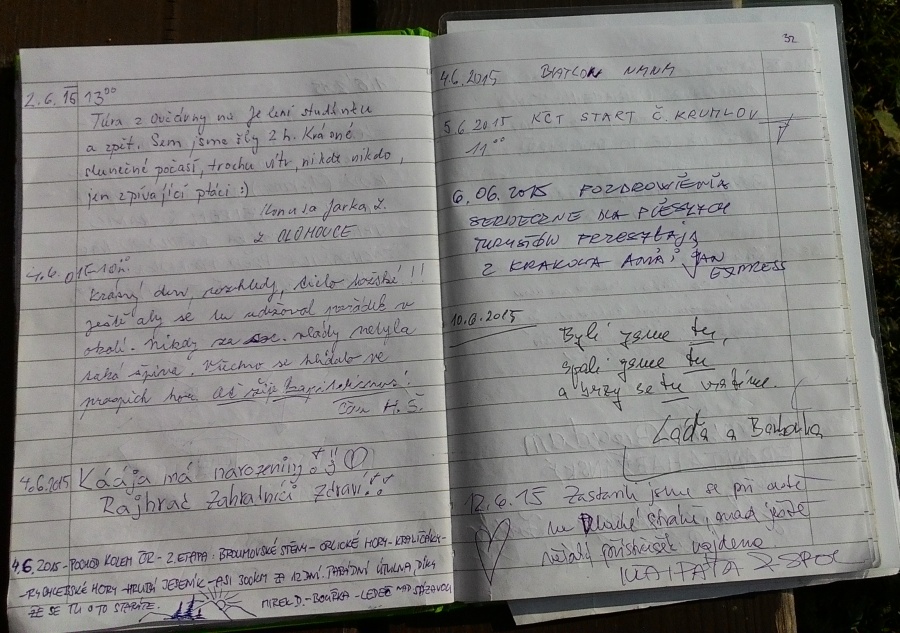 2.6.15 13⁰⁰
Túra z Ovčárny na Jelení studánku
a zpět. Sem jsme šly 2 h. Krásné
slunečné počasí, trochu vítr, nikde nikdo,
jen zpívající ptáci :)
Jarka Z.
z OLOMOUCE
Krásný den, rozhledy, ticho božské!!
Ještě aby se tu udržoval pořádek v
okolí. Nikdy za vlády nebyla
taká špína. Všechno se hlídalo ve
prospěch hor. Ať žije kapitalismus!
H. Š.
4.6.2015 Káája má narozeniny
Rajhrač Zahraničí Zdraví
4.6.2015 - POCHOD KOLEM ČR - 2. ETAPA: BROUMOVSKÉ STĚNY - ORLICKÉ HORY - KRALIČÁK -
- RYCHLEBSKÉ HORY - HRUBÝ JESENÍK - ASI 300KM ZA 12 DNÍ. PARÁDNÍ ÚTULNA, DÍKY
ŽE SE TU O TO STARÁTE. MIREK D. - BOUŘKA - LEDEČ NAD SÁZAVOU
32
4.6.2015 BIATLON
5.6.2015 KČT START Č. KRUMLOV
11⁰⁰
6.06.2015 POZDROWIENIA
SERDECZNE DLA PIESZYCH
TURYSTÓW PRZESYŁAJĄ
Z KRAKOWA ANIA i JAN
EXPRESS
10.6.2015
Byli jsme tu,
spali jsme tu
a brzy se tu vrátíme.
Láďa a Barborka
12.6.15 Zastavili jsme se při cestě
na Dlouhé stráně, snad ještě
nějaký přístřešek najdeme